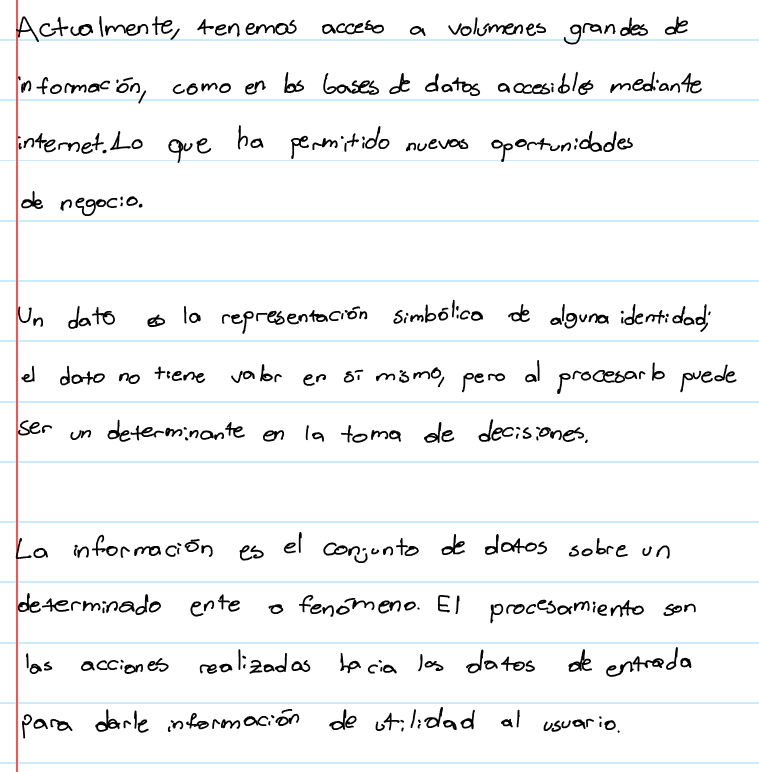 Actualmente, tenemos acceso a volúmenes grandes de
información, como en las bases de datos accesibles mediante
internet. Lo que ha permitido nuevas oportunidades
de negocio.
Un dato es la representación simbólica de alguna identidad;
el dato no tiene valor en sí mismo, pero al procesarlo puede
ser un determinante en la toma de decisiones.
La información es el conjunto de datos sobre un
determinado ente o fenómeno. El procesamiento son
las acciones realizadas hacia los datos de entrada
para darle información de utilidad al usuario.